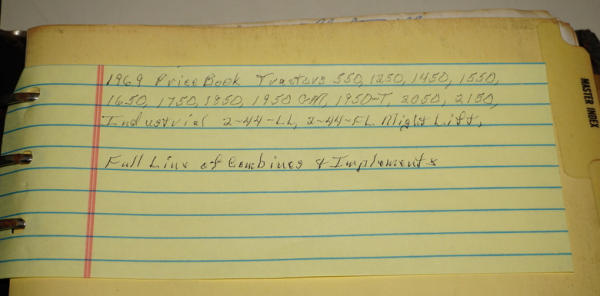 1969 Price Book Tractors 550, 1250, 1450, 1550,
1650, 1750, 1850, 1950 GM, 1950-T, 2050, 2150,
Industrial 2-44-LL, 2-44-FL Might Lift,
Full Line of Combines & Implements
MASTER INDEX